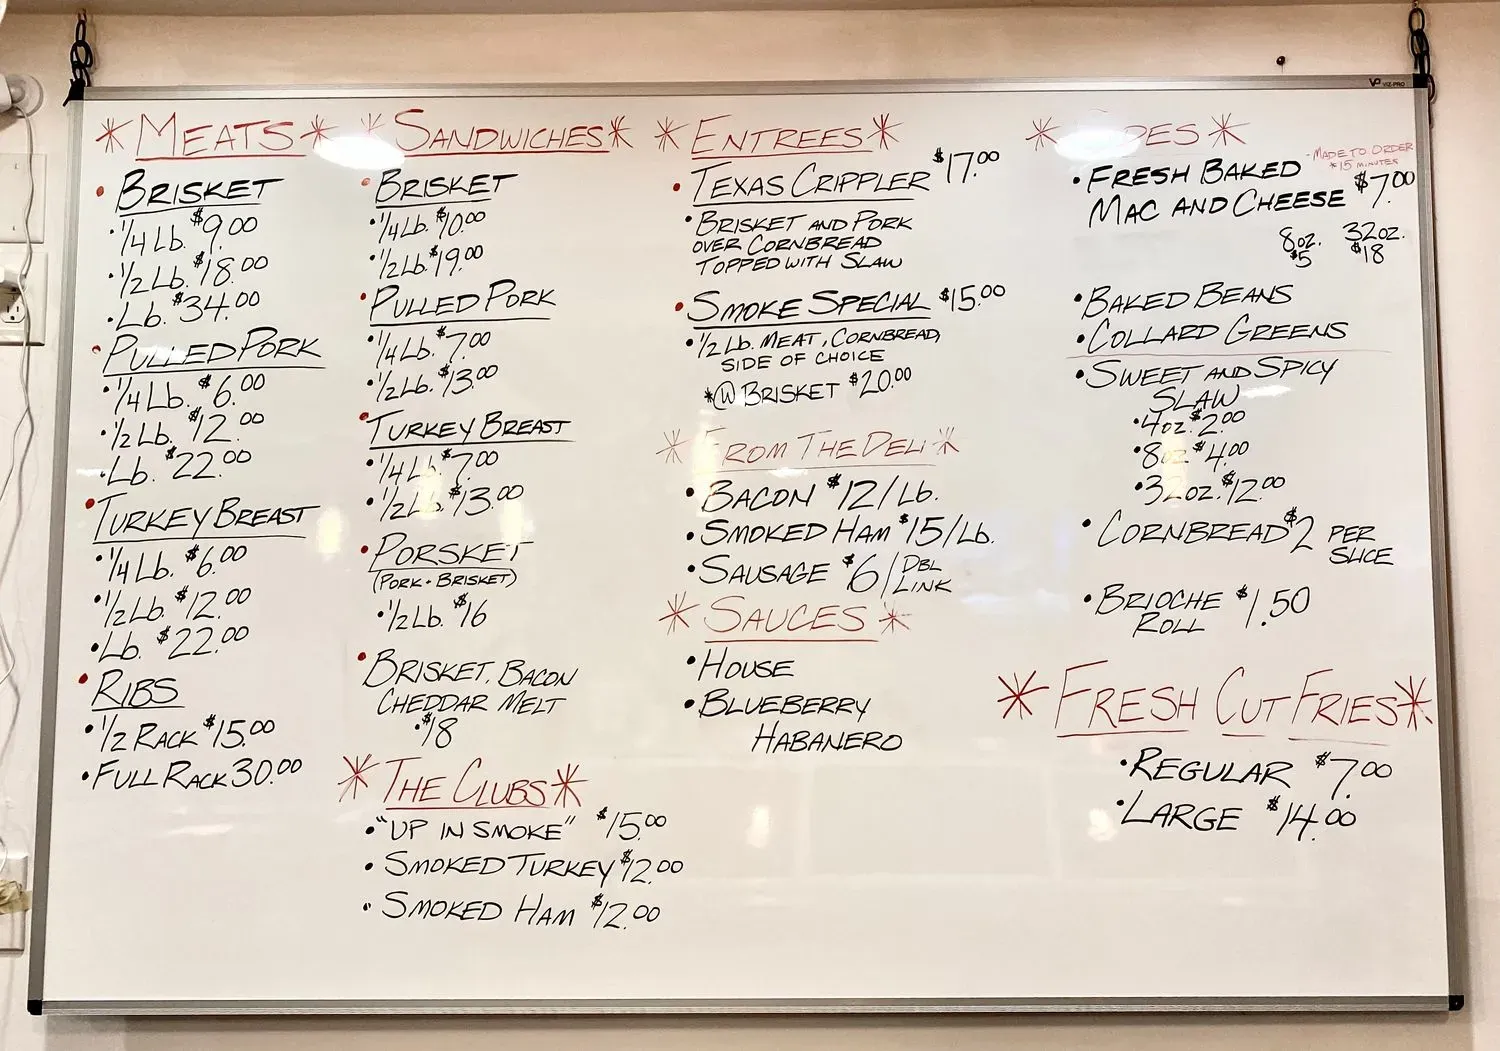 * MEATS *
• BRISKET
• 1/4 Lb. $9.00
• 1/2 Lb. $18.00
• Lb. $34.00
• PULLED PORK
• 1/4 Lb. $6.00
• 1/2 Lb. $12.00
• Lb. $22.00
• TURKEY BREAST
• 1/4 Lb. $6.00
• 1/2 Lb. $12.00
• Lb. $22.00
• RIBS
• 1/2 RACK $15.00
• FULL RACK 30.00
* SANDWICHES *
• BRISKET
• 1/4 Lb. $10.00
• 1/2 Lb. $19.00
• PULLED PORK
• 1/4 Lb. $7.00
• 1/2 Lb. $13.00
• TURKEY BREAST
• 1/4 Lb. $7.00
• 1/2 Lb. $13.00
• PORSKET
(PORK • BRISKET)
• 1/2 Lb. $16
• BRISKET, BACON
CHEDDAR MELT
• $18
* THE CLUBS *
• "UP IN SMOKE" $15.00
• SMOKED TURKEY $12.00
• SMOKED HAM $12.00
* ENTREES *
• TEXAS CRIPPLER $17.00
• BRISKET AND PORK
OVER CORNBREAD
TOPPED WITH SLAW
• SMOKE SPECIAL $15.00
• 1/2 Lb. MEAT, CORNBREAD,
SIDE OF CHOICE
*@ BRISKET $20.00
* FROM THE DELI *
• BACON $12/Lb.
• SMOKED HAM $15/Lb.
• SAUSAGE $6/DBL
LINK
* SAUCES *
• HOUSE
• BLUEBERRY
HABANERO
* SIDES *
- MADE TO ORDER
* 15 MINUTES
• FRESH BAKED
MAC AND CHEESE $7.00
8oz. 32oz.
$5 $18
• BAKED BEANS
• COLLARD GREENS
• SWEET AND SPICY
SLAW
• 4oz. $2.00
• 8oz $4.00
• 32oz. $12.00
• CORNBREAD $2 PER
SLICE
• BRIOCHE $1.50
ROLL
* FRESH CUT FRIES *
• REGULAR $7.00
• LARGE $14.00
VIZ-PRO